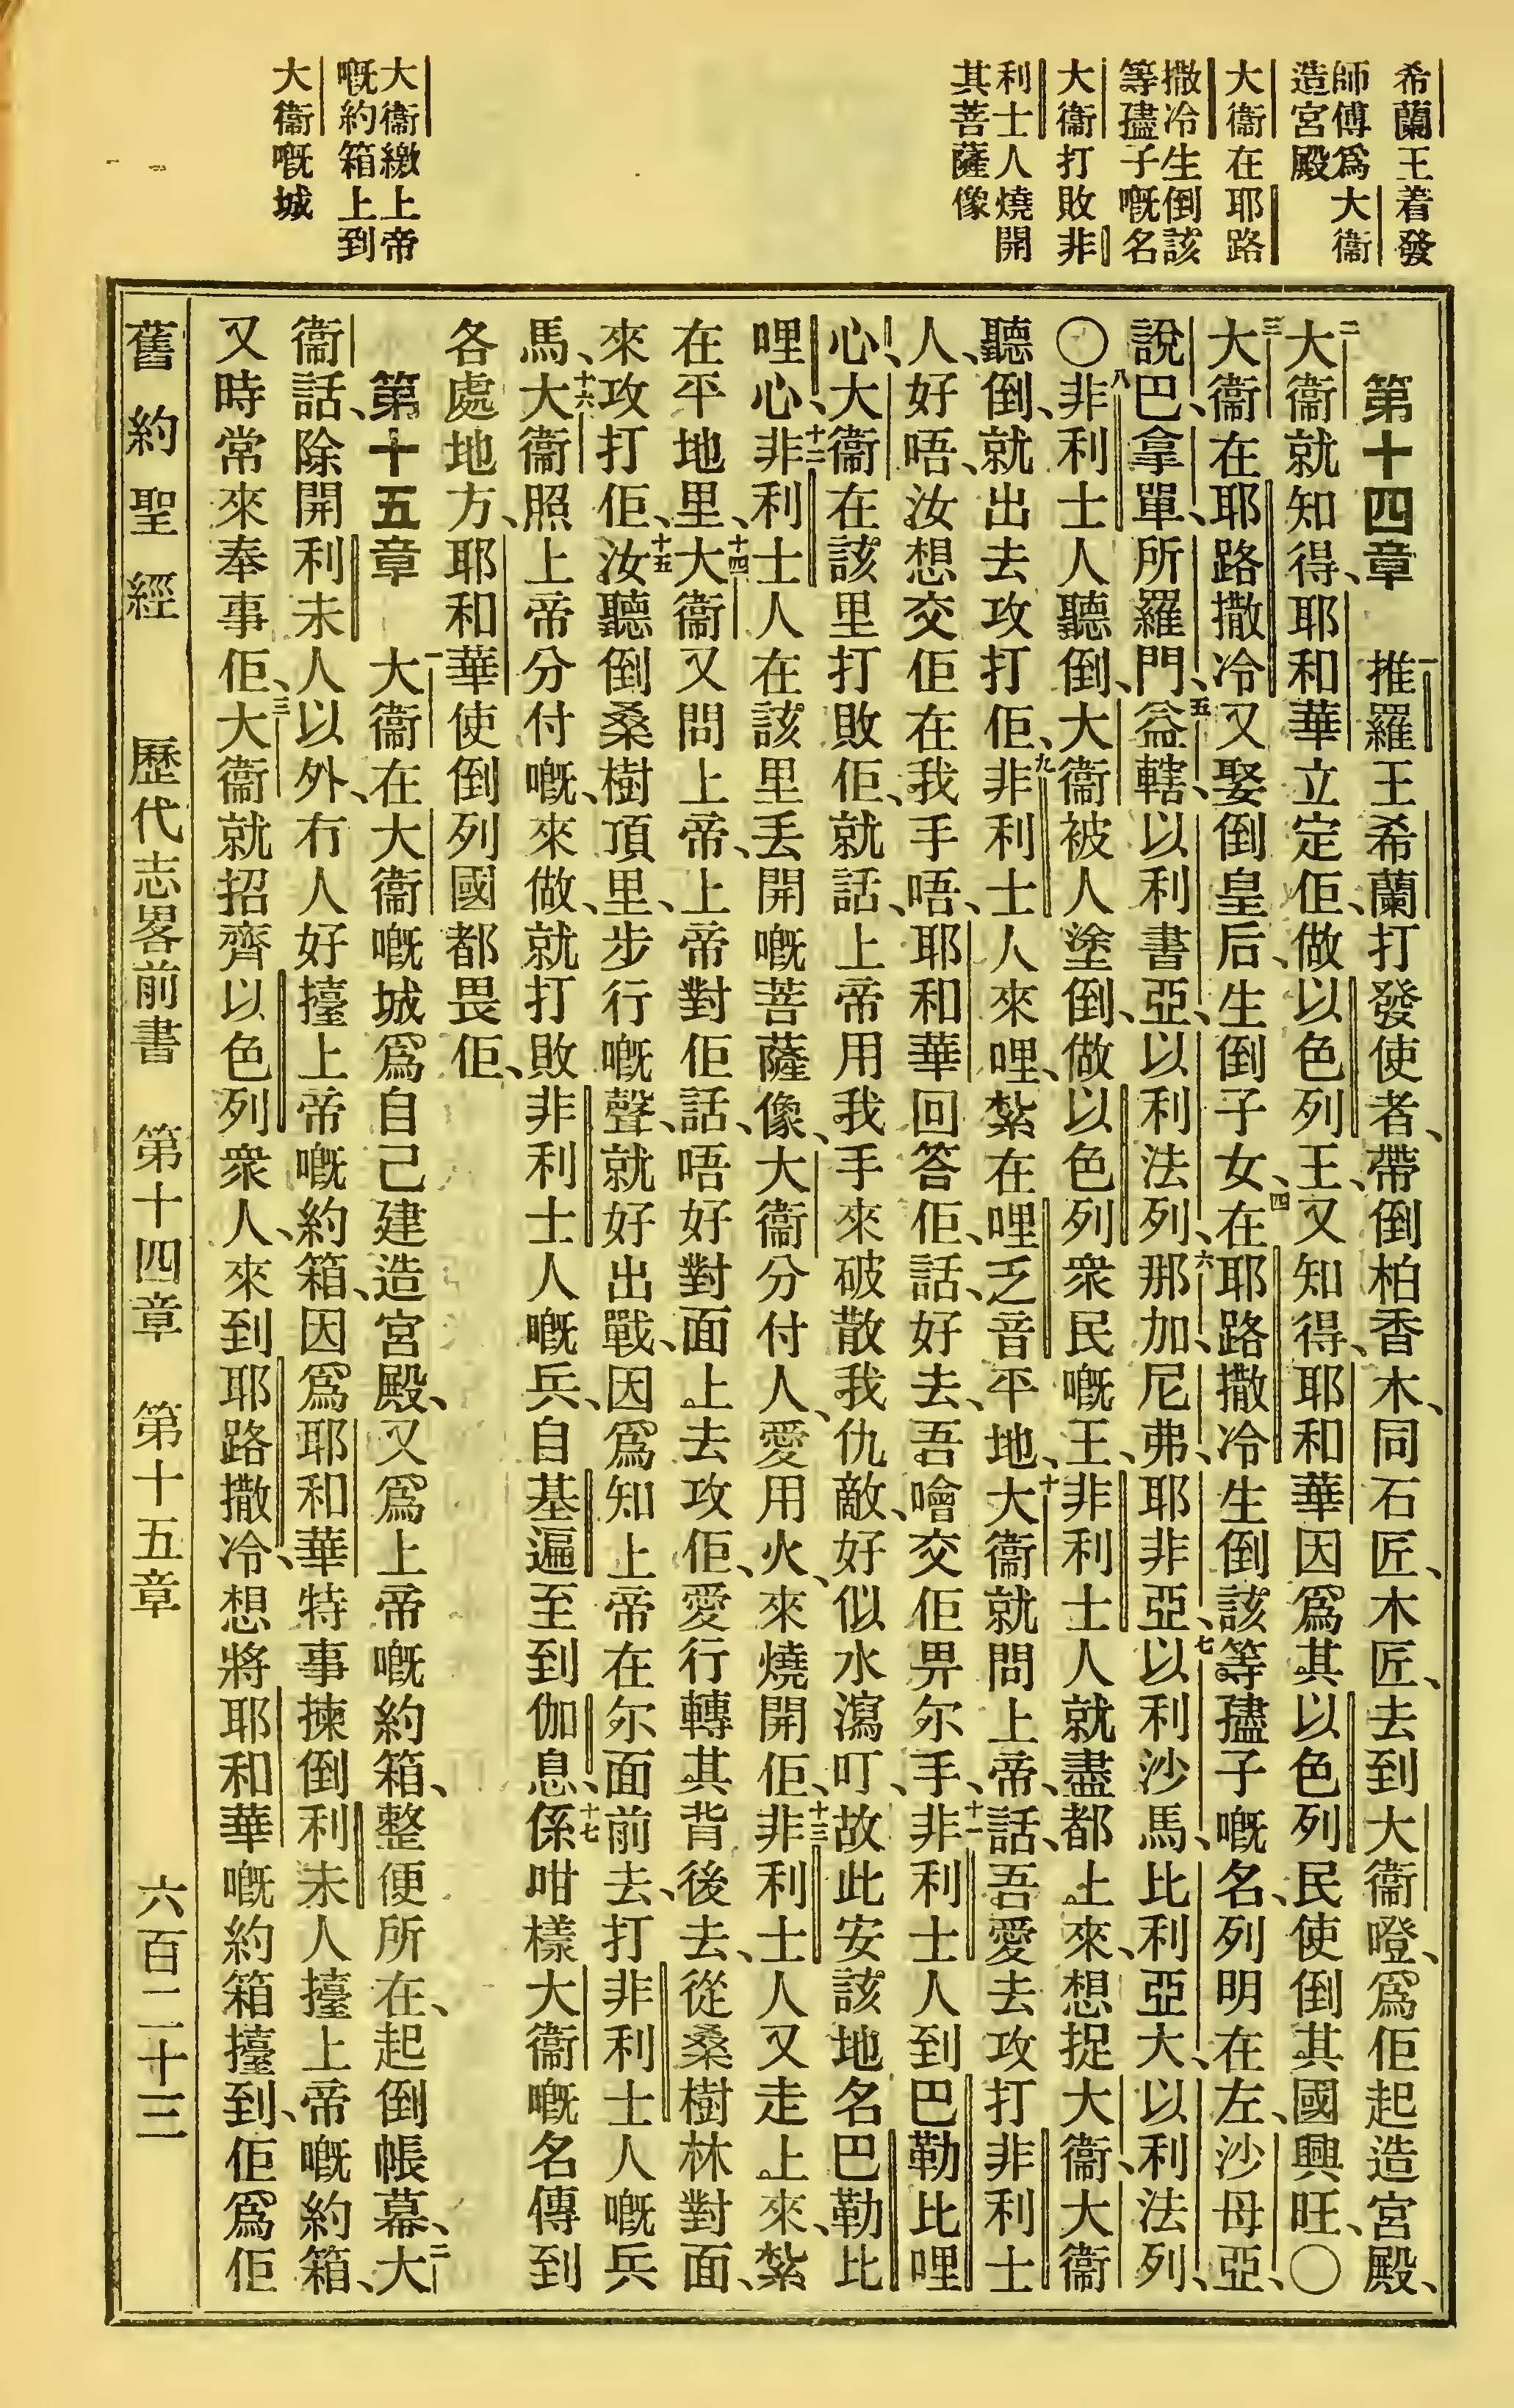 希蘭王着發
師傅爲大衞
造宮殿
大衞在耶路
撒冷生倒該
等孻子嘅名
大衞打敗非
利士人燒開
其菩薩像
大衞繳上帝
嘅約箱上到
大衞嘅城
第十四章 一推羅王希蘭打發使者、帶倒柏香木、同石匠、木匠、去到大衞嶝、爲佢起造宮殿、
二大衞就知得、耶和華立定佢、做以色列王、又知得、耶和華因爲其以色列民使倒其國興旺、〇
三大衞在耶路撒冷又娶倒皇后、生倒子女、四在耶路撒冷生倒該等孻子嘅名、列明在左、沙母亞、
說巴、拿單、所羅門、五益轄、以利書亞、以利法列、六那加、尼弗、耶非亞、七以利沙馬、比利亞大、以利法列、
〇八非利士人聽倒、大衞被人塗倒、做以色列衆民嘅王、非利士人就盡都上來、想捉大衞、大衞
聽倒、就出去攻打佢、九非利士人來哩、紮在哩乏音平地、十大衞就問上帝、話、吾愛去攻打非利士
人、好唔、汝想交佢在我手唔、耶和華回答佢、話、好去、吾噲交佢畀尔手、十一非利士人到巴勒比哩
心、大衞在該里打敗佢、就話、上帝用我手來破散我仇敵、好似水瀉叮、故此安該地名巴勒比
哩心、十二非利士人在該里丢開嘅菩薩像、大衞分付人、愛用火、來燒開佢、十三非利士人又走上來、紮
在平地里、十四大衞又問上帝、上帝對佢話、唔好對面上去攻佢、愛行轉其背後去、從桑樹林對面、
來攻打佢、十五汝聽倒桑樹頂里、步行嘅聲、就好出戰、因爲知上帝在尔面前去、打非利士人嘅兵
馬、十六大衞照上帝分付嘅、來做、就打敗非利士人嘅兵、自基遍至到伽息、十七係咁樣大衞嘅名傳到
各處地方、耶和華使倒列國都畏佢、
第十五章 一大衞在大衞嘅城爲自己建造宮殿、又爲上帝嘅約箱、整便所在、起倒帳幕、二大
衞話、除開利未人以外、冇人好擡上帝嘅約箱、因爲耶和華特事揀倒利未人擡上帝嘅約箱、
又時常來奉事佢、三大衞就招齊以色列衆人、來到耶路撒冷、想將耶和華嘅約箱擡到、佢爲佢
舊約聖經 歷代志畧前書 第十四章 第十五章 六百二十三